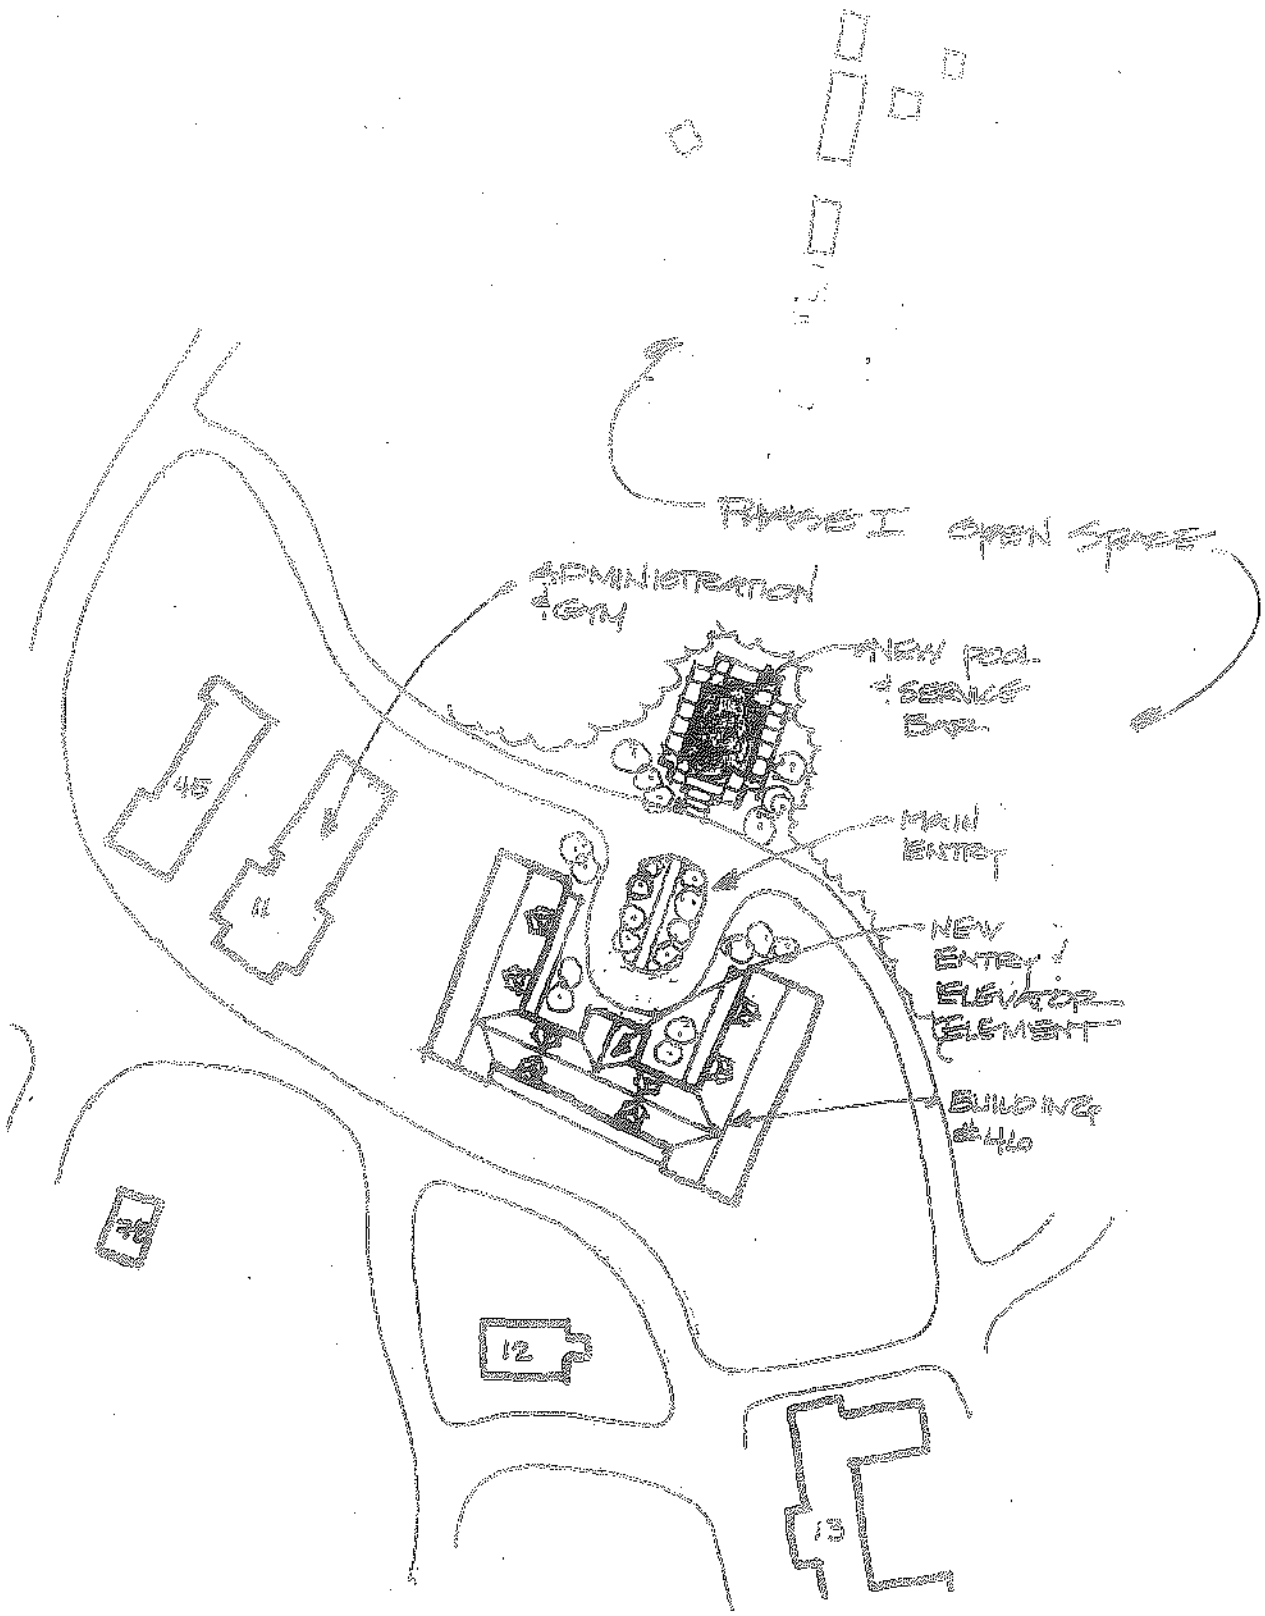 PHASE I OPEN SPACE
ADMINISTRATION
& GYM
NEW POOL
& SERVICE
BAR
MAIN
ENTRY
NEW
ENTRY &
ELEVATOR
ELEMENT
BUILDING
#46
45
11
12
13